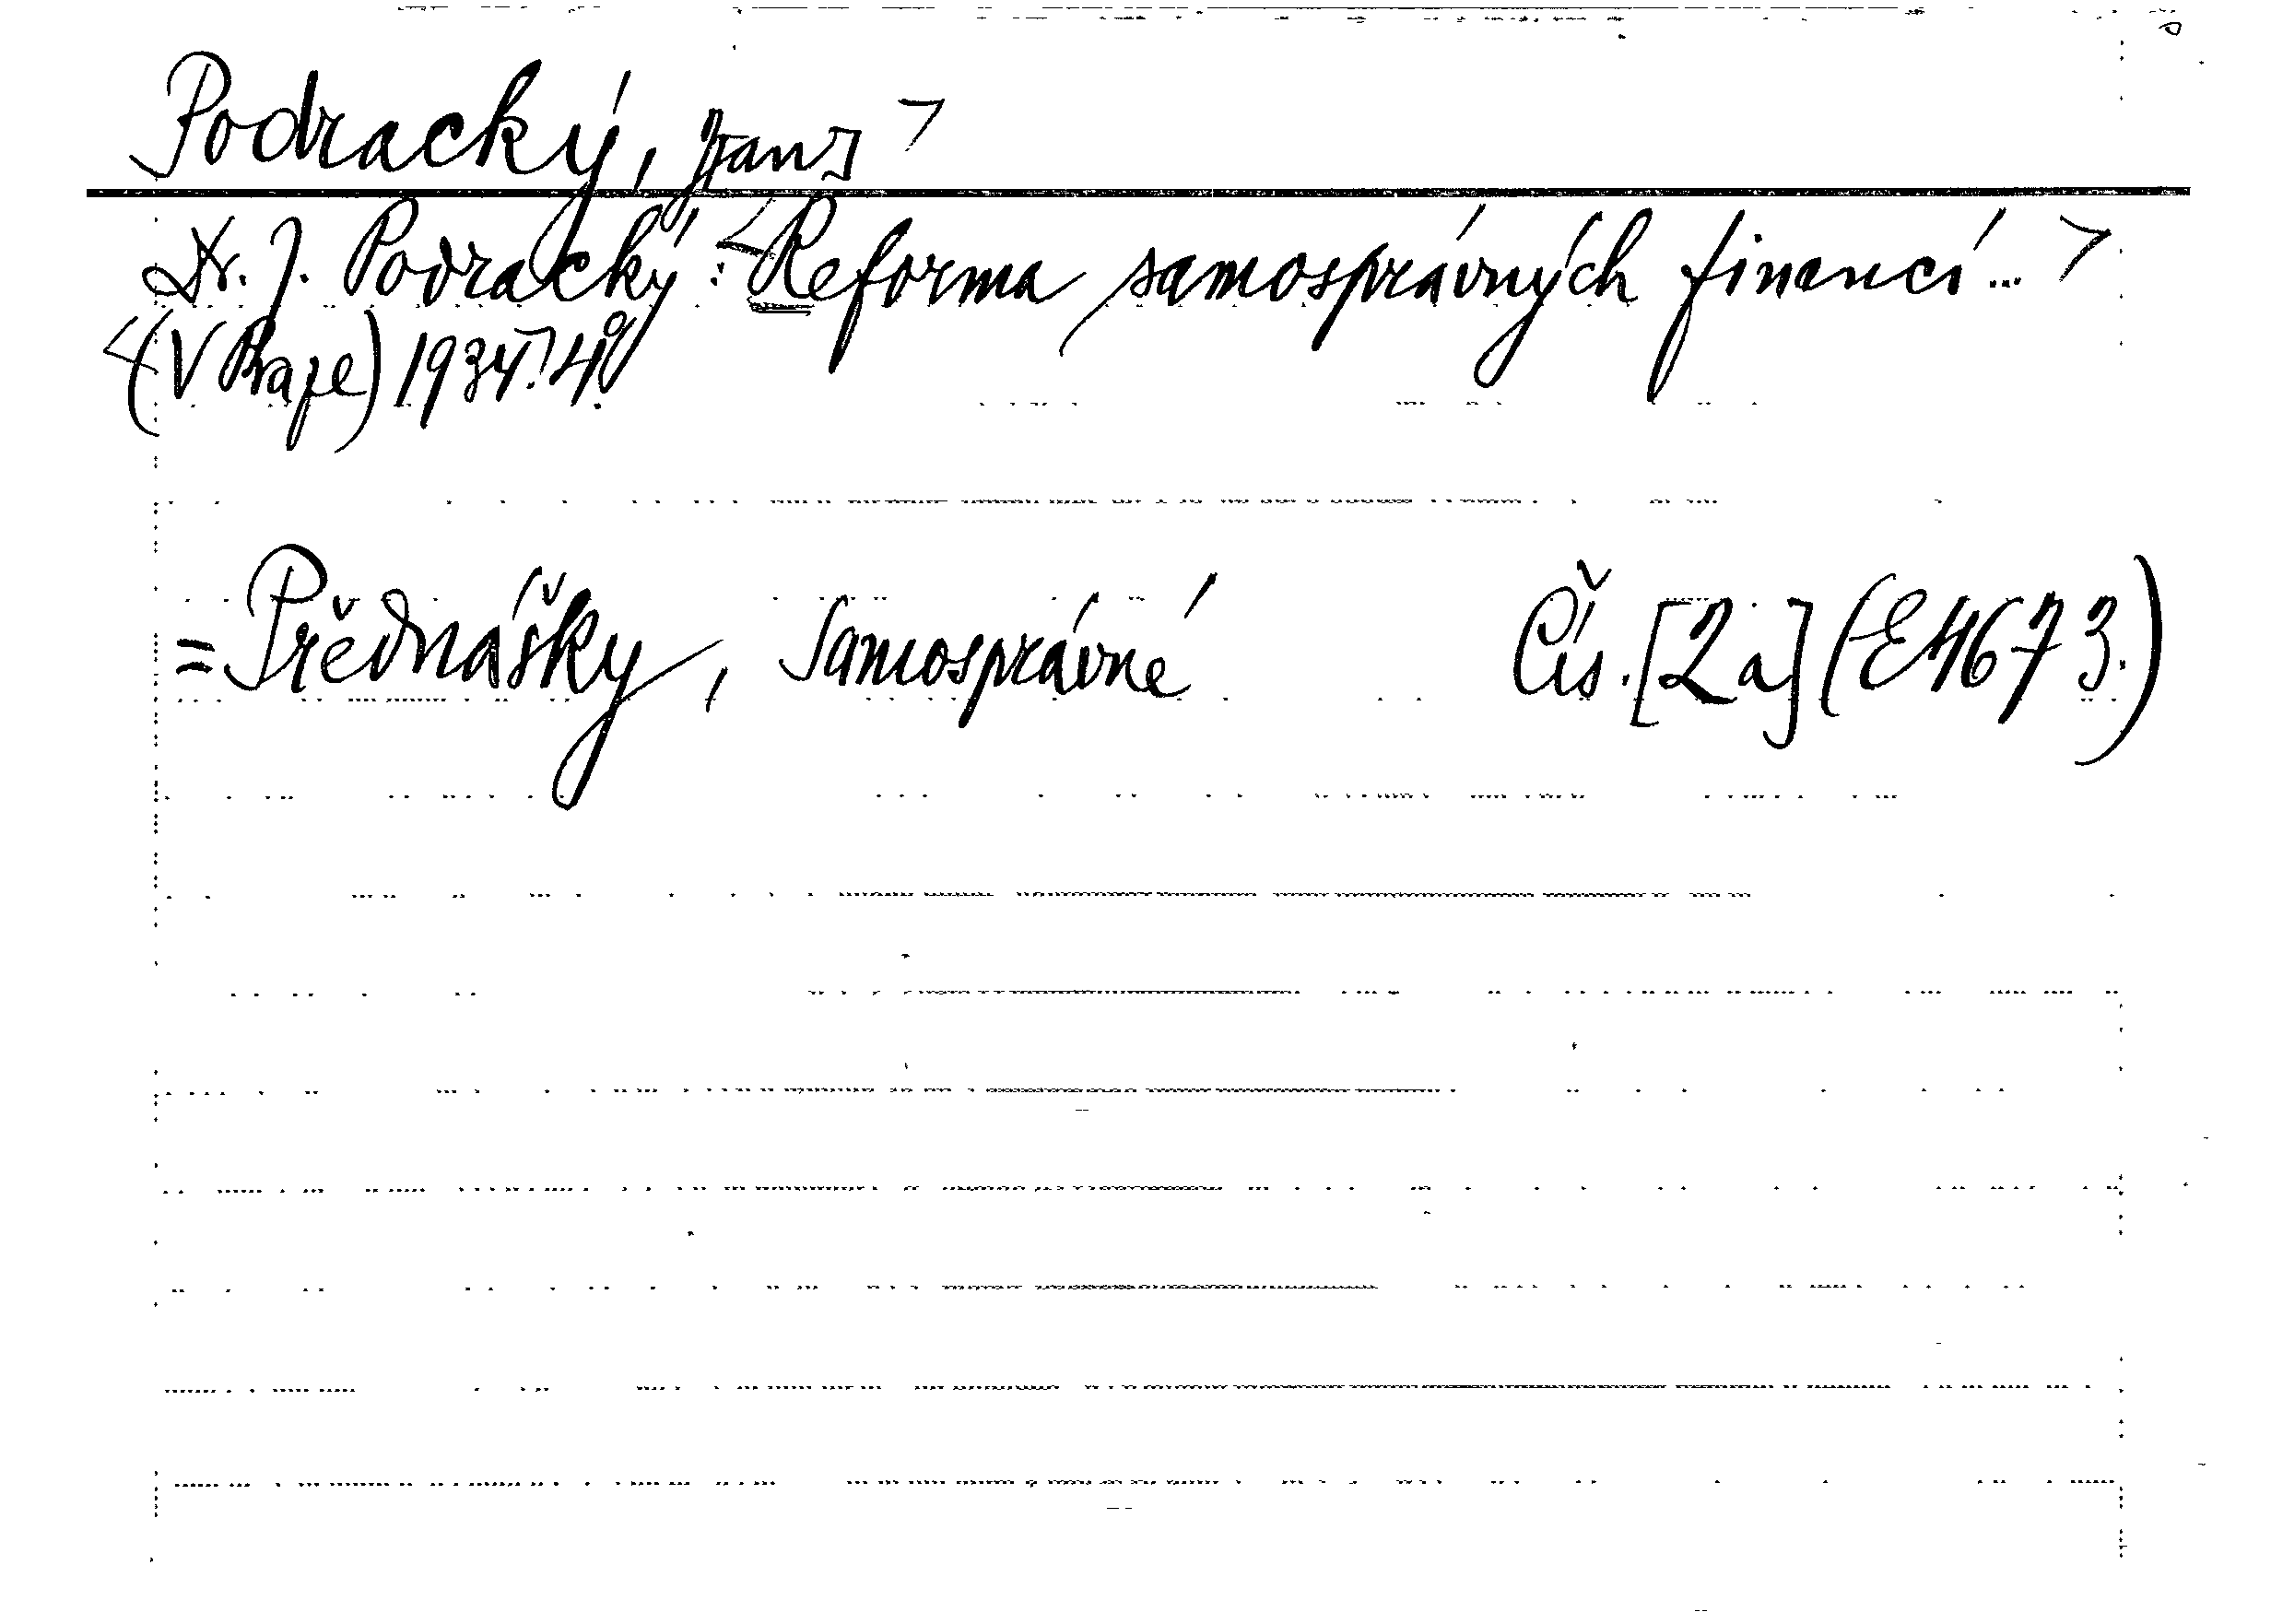 Podracký, J[an] >
Dr. J. Podracký: <Reforma samosprávných financí... >
<(V Praze) 1934.> 4°.
= Přednášky, Samosprávné Čís. [2a] (E 4673.)